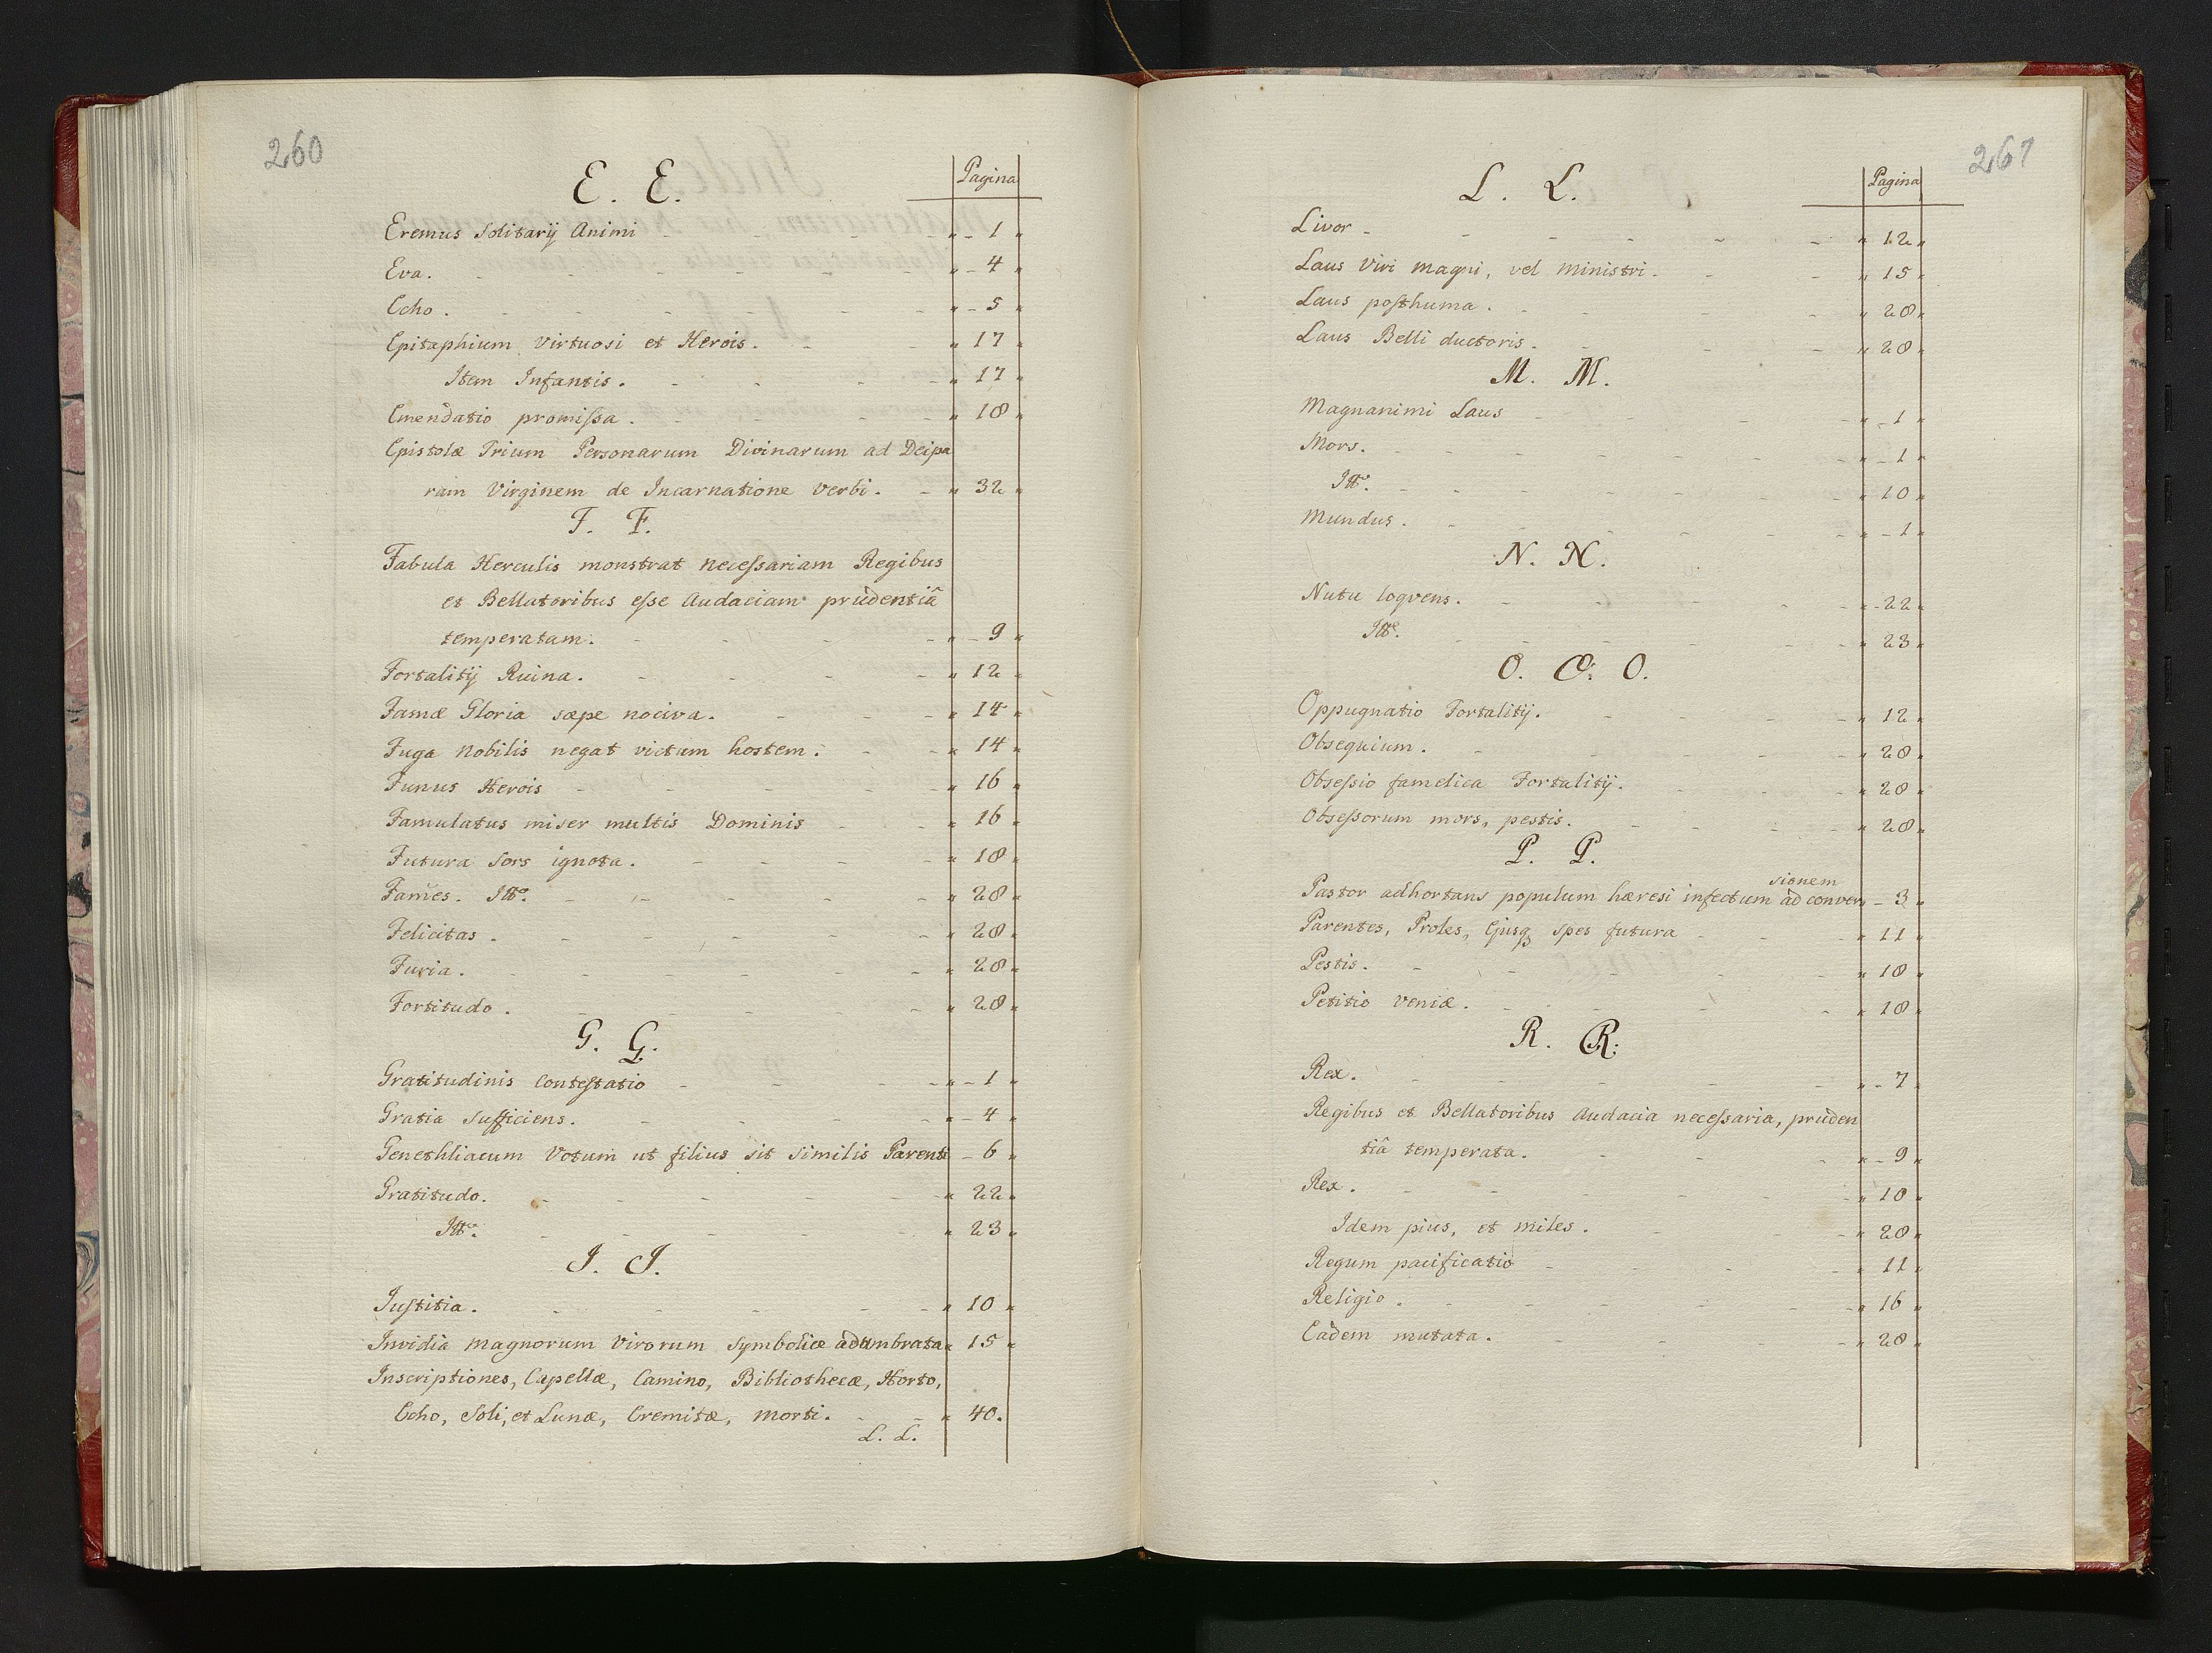 260
E. E.
Pagina
Eremus Solitarij Animi - - - " - 1 "
Eva. - - - - - - - " - 4 "
Echo. - - - - - - - " - 5 "
Epitaphium Virtuosi et Herois. - - " 17 "
Item Infantis. - - - - " 17 "
Emendatio promiſsa. - - - - " 18 "
Epistolæ Trium Personarum Divinarum ad Deipa
ram Virginem de Incarnatione Verbi. - " 32 "
F. F.
Fabula Herculis monstrat neceſsariam Regibus
et Bellatoribus eſse Audaciam prudentiâ
temperatam. - - - - " - 9 "
Fortalitij Ruina. - - - - " 12 "
Famæ Gloria sæpe nociva. - - - " 14 "
Fuga Nobilis negat victum hostem. - - " 14 "
Funus Herois - - - - - " 16 "
Famulatus miser multis Dominis - - " 16 "
Futura Sors ignota. - - - - " 18 "
Fames. Itt. - - - - - " 28 "
Felicitas. - - - - - - " 28 "
Furia. - - - - - - " 28 "
Fortitudo. - - - - - " 28 "
G. G.
Gratitudinis Conteſtatio - - - - " - 1 "
Gratia Sufficiens. - - - - " - 4 "
Genethliacum Votum ut filius sit Similis Parenti - 6 "
Gratitudo. - - - - - " 22 "
Itt. - - - - - " 23 "
I. I.
Juſtitia. - - - - - " 10 "
Invidia magnorum Virorum Symbolice adumbrata " 15 "
Inscriptiones, Capellæ, Camino, Bibliothecæ, Horto,
Echo, Soli, et Lunæ, Eremitæ, Morti. - - " 40.
L. L.
261
L. L.
Pagina
Livor - - - - - - " 12 "
Laus Viri magni, vel Ministri. - - " 15 "
Laus poſthuma. - - - - " 28 "
Laus Belli ductoris. - - - " 28 "
M. M.
Magnanimi Laus - - - - " - 1 "
Mors. - - - - - - " - 1 "
Itt. - - - - - - " 10 "
Mundus. - - - - - " - 1 "
N. N.
Nutu loqvens. - - - - " - 22 "
Itt. - - - - - " 23 "
O. O. O.
Oppugnatio Fortalitij. - - - " 12 "
Obsequium. - - - - - " 28 "
Obseſsio famelica Fortalitij. - - - " 28 "
Obseſsorum mors, pestis. - - - " 28 "
P. P.
sionem
Pastor adhortans populum hæresi infectum ad conver - 3 "
Parentes, Proles, Ejusq; Spes futura - - - " 11 "
Pestis. - - - - - - " 18 "
Petitio Veniæ. - - - - " 18 "
R. R.
Rex. - - - - - " - 7 "
Regibus et Bellatoribus Audacia neceſsaria, pruden
tiâ temperata. - - - " - 9 "
Rex. - - - - - " 10 "
Idem pius, et Miles. - - - " 28 "
Regum pacificatio - - - - " 11 "
Religio. - - - - - " 16 "
Eadem mutata. - - - - " 28 "